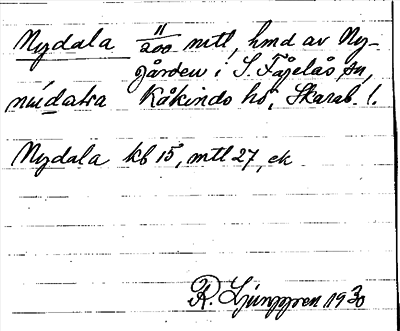 Nydala 11/200 mtl, hmd av Ny-
gården i S. Fågelås sn,
Kåkinds hd, Skarab. l.
Nydala kb 15, mtl 27, ek
R. Ljunggren 1930